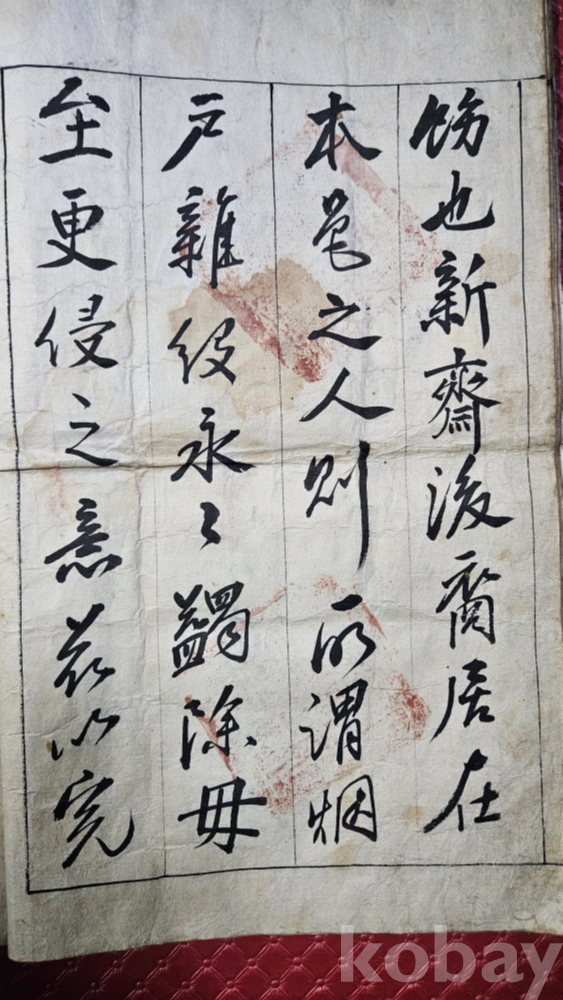 飭也新齋後裔居在
本邑之人則所謂烟
戶雜役永〻蠲除毋
至更侵之意玆以完
kobay